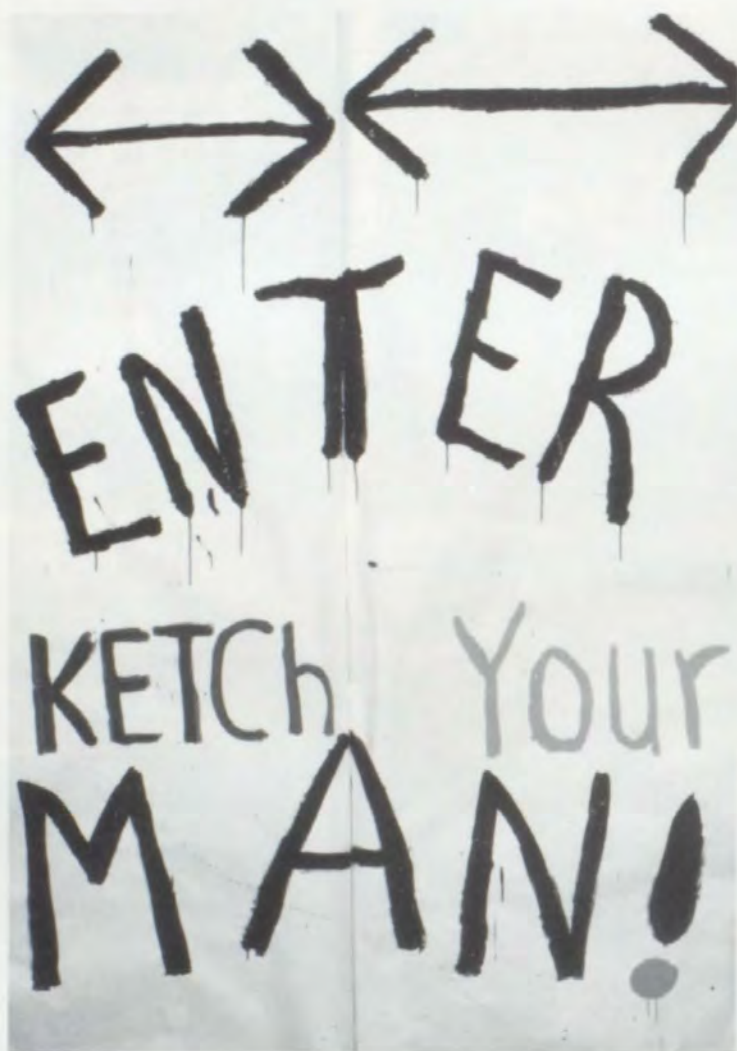 ENTER
KETCh Your
MAN!